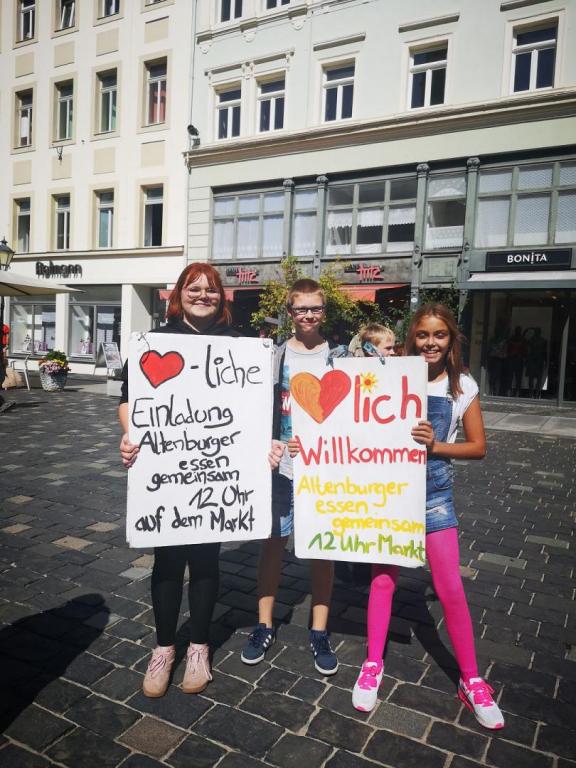 Rolfmann
BONITA
-liche
Einladung
Altenburger
essen
gemeinsam
12 Uhr
auf dem Markt
lich
Willkommen
Altenburger
essen-
gemeinsam
12 Uhr Markt